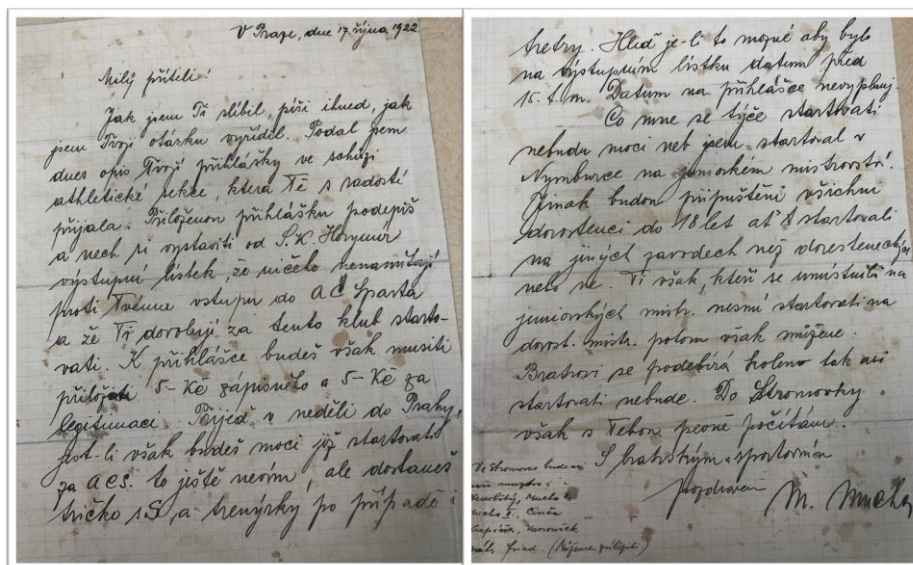 V Praze, dne 17. října 1922
Milý příteli!
Jak jsem Ti slíbil, píši ihned, jak
jsem Tvoji otázku vyřídil. Podal jsem
dnes opis Tvojí přihlášky ve schůzi
athletické sekce, která Tě s radostí
přijala. Přiloženou přihlášku podepiš
a nech si vystaviti od S.K. Horymír
výstupní lístek, že ničeho nenamítají
proti Tvému vstupu do AC Sparta
a že Ti dovolují za tento klub starto-
vati. K přihlášce budeš však musiti
přiložiti 5- Kč zápisného a 5- Kč za
legitimaci. Přijeď v neděli do Prahy,
jest-li však budeš moci již startovati
za ACS. to ještě nevím, ale dostaneš
tričko s S, a trenýrky po případě i
tretry. Hleď je-li to možné aby bylo
na výstupním lístku datum před
15. t.m. Datum na přihlášce nevyplňuj.
Co mne se týče startovati
nebudu moci neb jsem startoval v
Nymburce na juniorkém mistrovství.
Jinak budou připuštěni všichni
dorostenci do 18 let ať startovali
na jiných závodech než dorosteneckých
nebo ne. Ti však, kteří se umístnili na
juniorských mistr. nesmí startovati na
dorost. mistr. potom však můžeme.
Bratrovi se podebírá koleno tak asi
startovati nebude. Do Stromovky
však s Tebou pevně počítáme.
S bratrským a sportovním
pozdravem M. Mucha
Ve Stromovce budeme
Mucha
Fried. (Můžeme zvítězit)